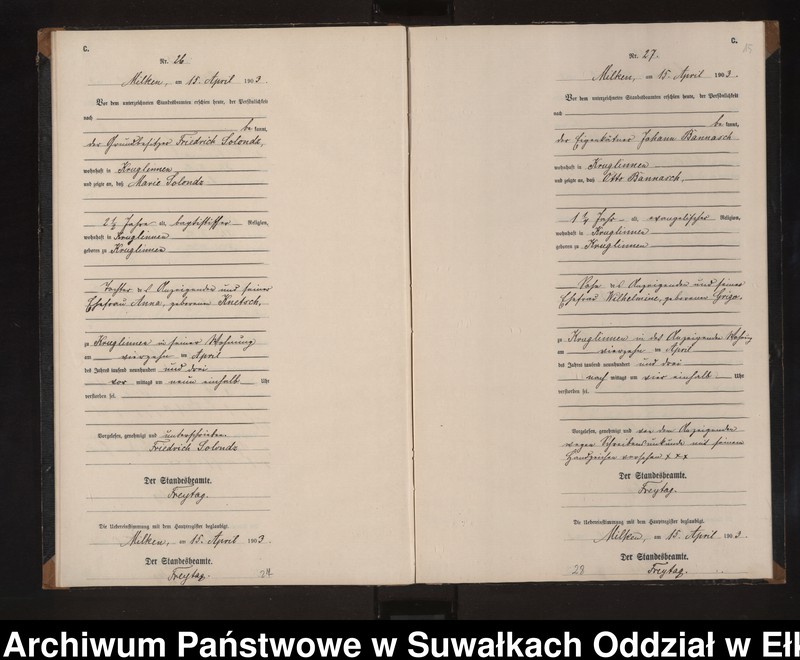 C.
Nr. 26.
Milken, am 15. April 1903.
Vor dem unterzeichneten Standesbeamten erschien heute, der Persönlichkeit
nach
be kannt,
der Grundbesitzer Friedrich Solonds,
wohnhaft in Kruglinnen
und zeigte an, daß Marie Solonds
2½ Jahre a. baptistischer Religion,
wohnhaft in Kruglinnen
geboren zu Kruglinnen
Tochter des Anzeigenden und seiner
Ehefrau Anna, geborenen
zu Kruglinnen in seiner Wohnung
am vierzehn ten April
des Jahres tausend neunhundert und drei
vor mittags um neun einhalb Uhr
verstorben sei.
Vorgelesen, genehmigt und unterschrieben
Friedrich Solonds
Der Standesbeamte.
Freytag.
Die Uebereinstimmung mit dem Hauptregister beglaubigt.
Milken, am 15. April 1903.
Der Standesbeamte.
Freytag.
C.
Nr. 27.
Milken, am 15. April 1903.
Vor dem unterzeichneten Standesbeamten erschien heute, der Persönlichkeit
nach
be kannt,
der Eigenkätner Johann Bannasch
wohnhaft in Kruglinnen
und zeigte an, daß Otto Bannasch,
1¼ Jahr a. evangelischer Religion,
wohnhaft in Kruglinnen
geboren zu Kruglinnen
Sohn des Anzeigenden und seiner
Ehefrau Wilhelmine, geborenen Grigo.
zu Kruglinnen in des Anzeigenden Wohnung
am vierzehn ten April
des Jahres tausend neunhundert und drei
nach mittags um vier einhalb Uhr
verstorben sei.
Vorgelesen, genehmigt und von dem Anzeigenden
wegen Schreibensunkunde mit seinem
Handzeichen versehen x x x
Der Standesbeamte.
Freytag.
Die Uebereinstimmung mit dem Hauptregister beglaubigt.
Milken, am 15. April 1903.
Der Standesbeamte.
28 Freytag.
Archiwum Państwowe w Suwałkach Oddział w Eł